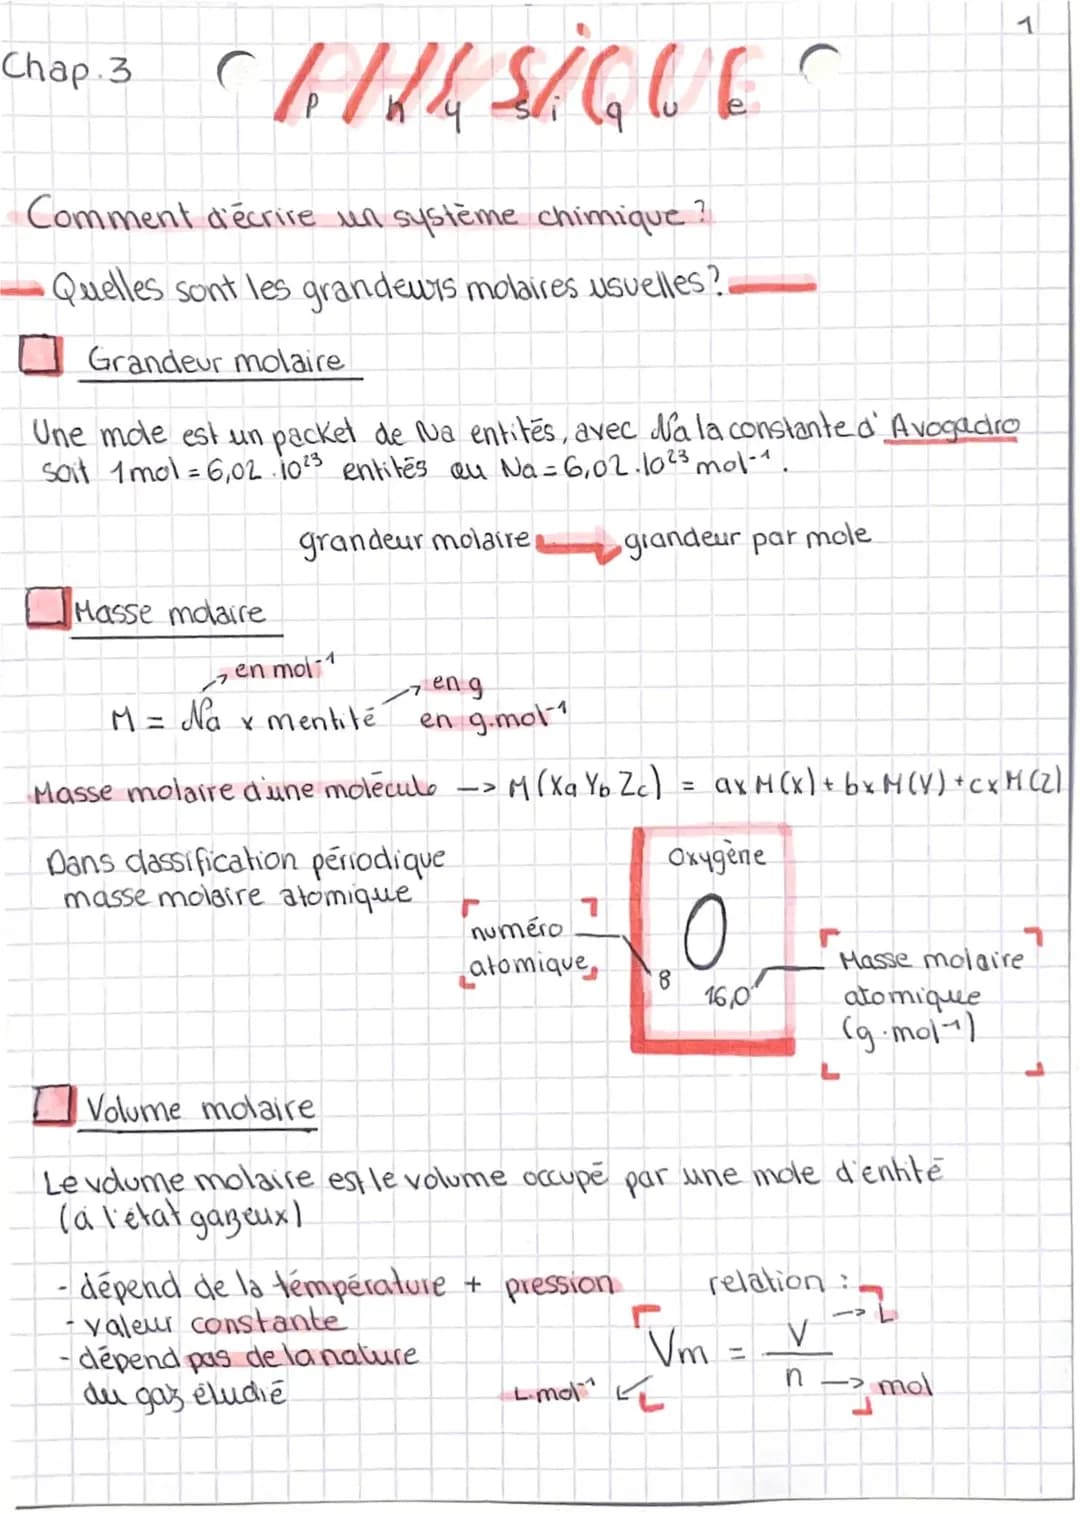 1
Chap.3
PHYSIQUE
Physique
Comment d'écrire un système chimique ?
Quelles sont les grandeurs molaires usuelles ?
Grandeur molaire
Une mole est un packet de Na entités, avec Na la constante d'Avogadro
soit 1 mol = 6,02 . 10²³ entités ou Na = 6,02 . 10²³ mol⁻¹.
grandeur molaire → grandeur par mole
Masse molaire
en mol⁻¹
en g
M = Na x mentité en g.mol⁻¹
Masse molaire d'une molécule --> M(XaYbZc) = a x M(X) + b x M(Y) + c x M(Z)
Dans classification périodique
masse molaire atomique
Oxygène
O
8
16,0
numéro
atomique
Masse molaire
atomique
(g.mol⁻¹)
Volume molaire
Le volume molaire est le volume occupé par une mole d'entité
(à l'état gazeux)
- dépend de la température + pression
- valeur constante
- dépend pas de la nature
du gaz étudié
relation :
Vm = V/n
--> L
--> mol
L.mol⁻¹